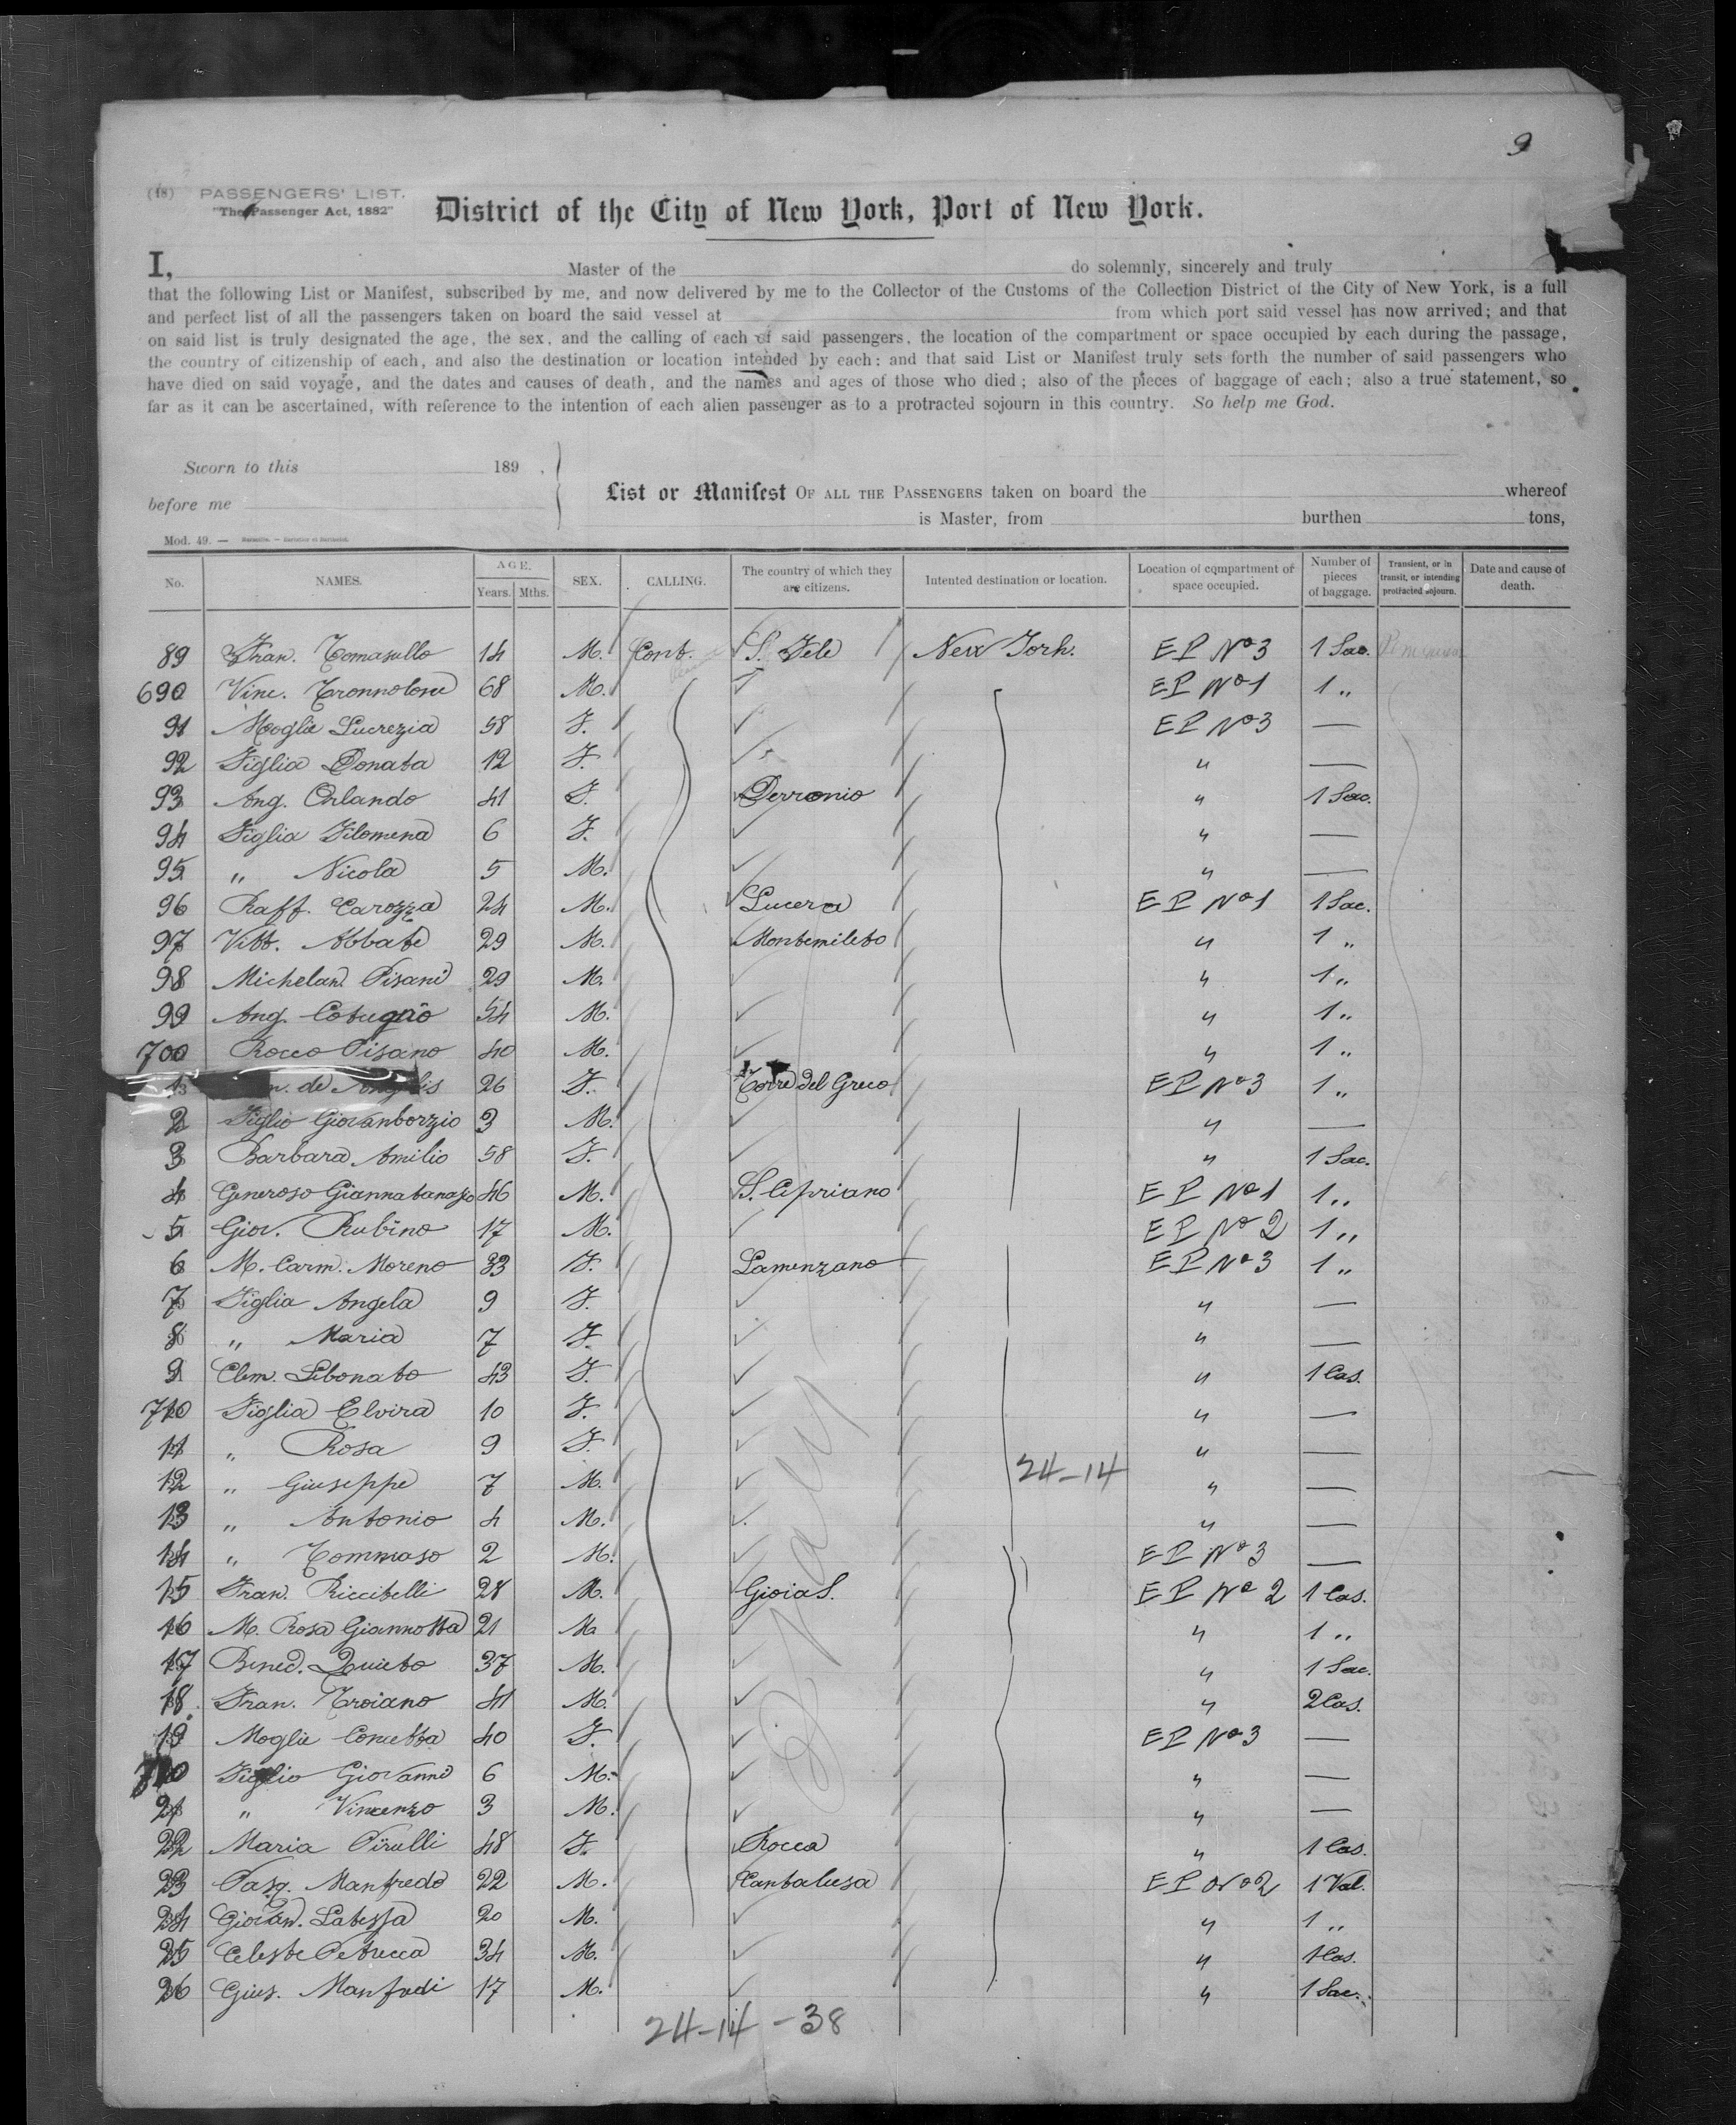 9
(18) PASSENGERS' LIST.
"The Passenger Act, 1882"
District of the City of New York, Port of New York.
I, Master of the do solemnly, sincerely and truly
that the following List or Manifest, subscribed by me, and now delivered by me to the Collector of the Customs of the Collection District of the City of New York, is a full
and perfect list of all the passengers taken on board the said vessel at from which port said vessel has now arrived; and that
on said list is truly designated the age, the sex, and the calling of each of said passengers, the location of the compartment or space occupied by each during the passage,
the country of citizenship of each, and also the destination or location intended by each: and that said List or Manifest truly sets forth the number of said passengers who
have died on said voyage, and the dates and causes of death, and the names and ages of those who died; also of the pieces of baggage of each; also a true statement, so
far as it can be ascertained, with reference to the intention of each alien passenger as to a protracted sojourn in this country. So help me God.
Sworn to this 189 .
before me
List or Manifest OF ALL THE PASSENGERS taken on board the whereof
is Master, from burthen tons,
Mod. 49. —
No. NAMES. AGE. Years. Mths. SEX. CALLING. The country of which they are citizens. Intented destination or location. Location of compartment or space occupied. Number of pieces of baggage. Transient, or in transit, or intending protracted sojourn. Date and cause of death.
89 Fran. Tomasullo 14 M. Cont. S. Fele New York. EP No 3 1 Sac.
690 Vinc. Tronnolone 68 M. ✓ EP No 1 1 "
91 Moglie Lucrezia 58 F. ✓ EP No 3 —
92 Figlia Donata 12 F. ✓ " —
93 Ang. Orlando 41 F. " 1 Sac.
94 Figlia Filomena 6 F. ✓ " —
95 " Nicola 5 M. ✓ " —
96 Raff. Carozza 24 M. Lucera EP No 1 1 Sac.
97 Vitt. Abbate 29 M. Montemileto " 1 "
98 Michelan. Pisani 29 M. ✓ " 1 "
99 Ang. Cotugno 54 M. ✓ " 1 "
700 Rocco Pisano 40 M. ✓ " 1 "
1 de Angelis 26 F. Torre del Greco EP No 3 1 "
2 Figlio Giovanborzio 3 M. ✓ " —
3 Barbara Amilio 58 F. ✓ " 1 Sac.
4 Generoso Giannatanasio 46 M. S. Cipriano EP No 1 1 "
5 Giov. Rubino 17 M. ✓ EP No 2 1 "
6 M. Carm. Moreno 33 F. Lamenzano EP No 3 1 "
7 Figlia Angela 9 F. ✓ " —
8 " Maria 7 F. ✓ " —
9 Clem. Libonato 43 F. ✓ " 1 Cas.
710 Figlia Elvira 10 F. ✓ " —
11 " Rosa 9 F. ✓ " —
24-14
12 " Giuseppe 7 M. ✓ " —
13 " Antonio 4 M. ✓ " —
14 " Tommaso 2 M. ✓ EP No 3 —
15 Fran. Riccitelli 28 M. Gioia S. EP No 2 1 Cas.
16 M. Rosa Giannotta 21 M ✓ " 1 "
17 Bened. Quieto 37 M. ✓ " 1 Sac.
18. Fran. Troiano 41 M. ✓ " 2 Cas.
19 Moglie Concetta 40 F. ✓ EP No 3 —
720 Figlio Giovanni 6 M. ✓ " —
21 " Vincenzo 3 M. ✓ " —
22 Maria Pirulli 48 F. Rocca " 1 Cas.
23 Pasq. Manfredo 22 M. Cantalusa EP No 2 1 Val.
24 Giovan. Latessa 20 M. ✓ " 1 "
25 Celeste Petrucca 34 M. ✓ " 1 Cas.
26 Gius. Manfredi 17 M. ✓ " 1 Sac.
24-14 - 38